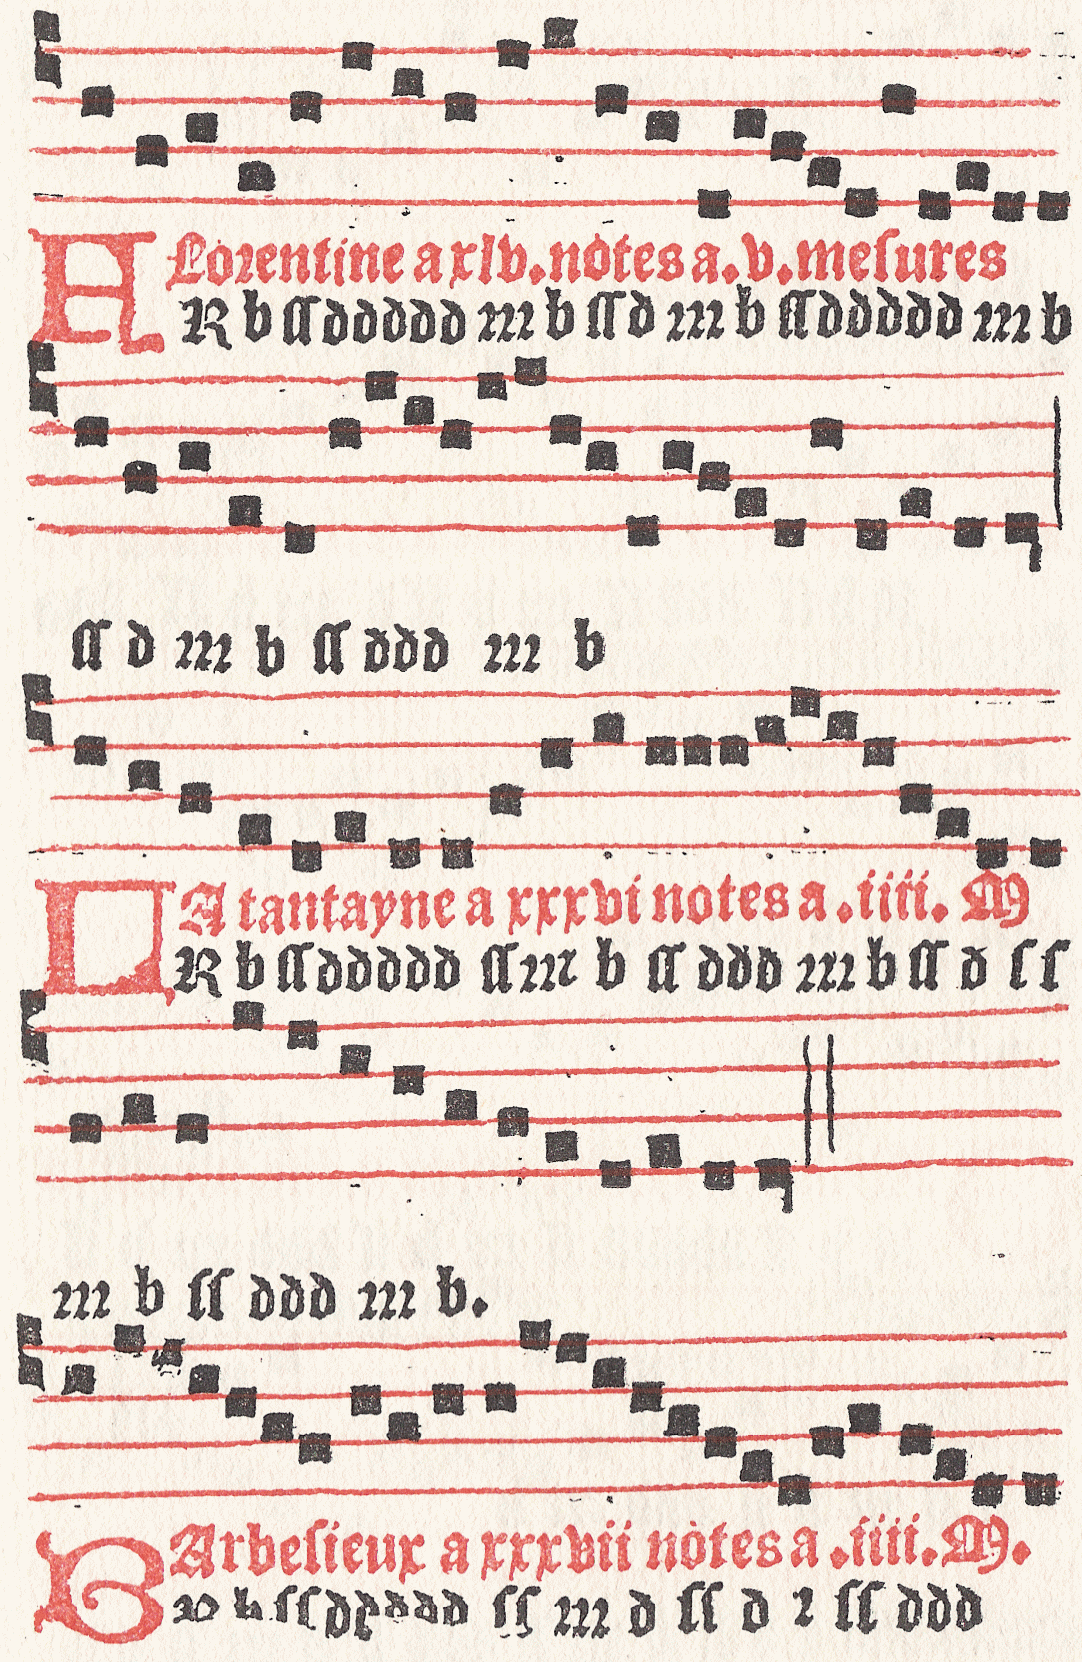 FLorentine a xlv. notes a .v. meſures
R b ſſ ddddd rrr b ſſ d rrr b ſſ ddddd rrr b
ſſ d rrr b ſſ ddd rrr b
LA tantayne a xxxvi notes a .iiii. M
R b ſſ ddddd ſſ rrr b ſſ ddd rrr b ſſ d ſſ
rrr b ſſ ddd rrr b.
BArbeſieux a xxxvii notes a .iiii. M.
R b ſſ ddddd ſſ rrr d ſſ d r ſſ ddd